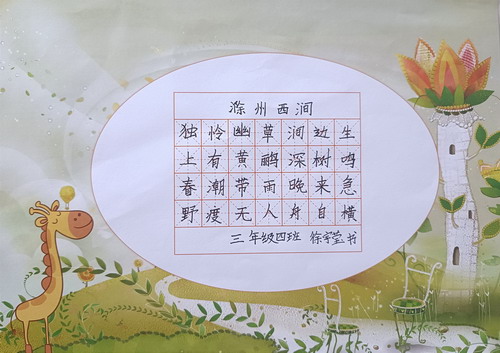 滁州西涧
独怜幽草涧边生
上有黄鹂深树鸣
春潮带雨晚来急
野渡无人舟自横
三年级四班 徐宇莹书